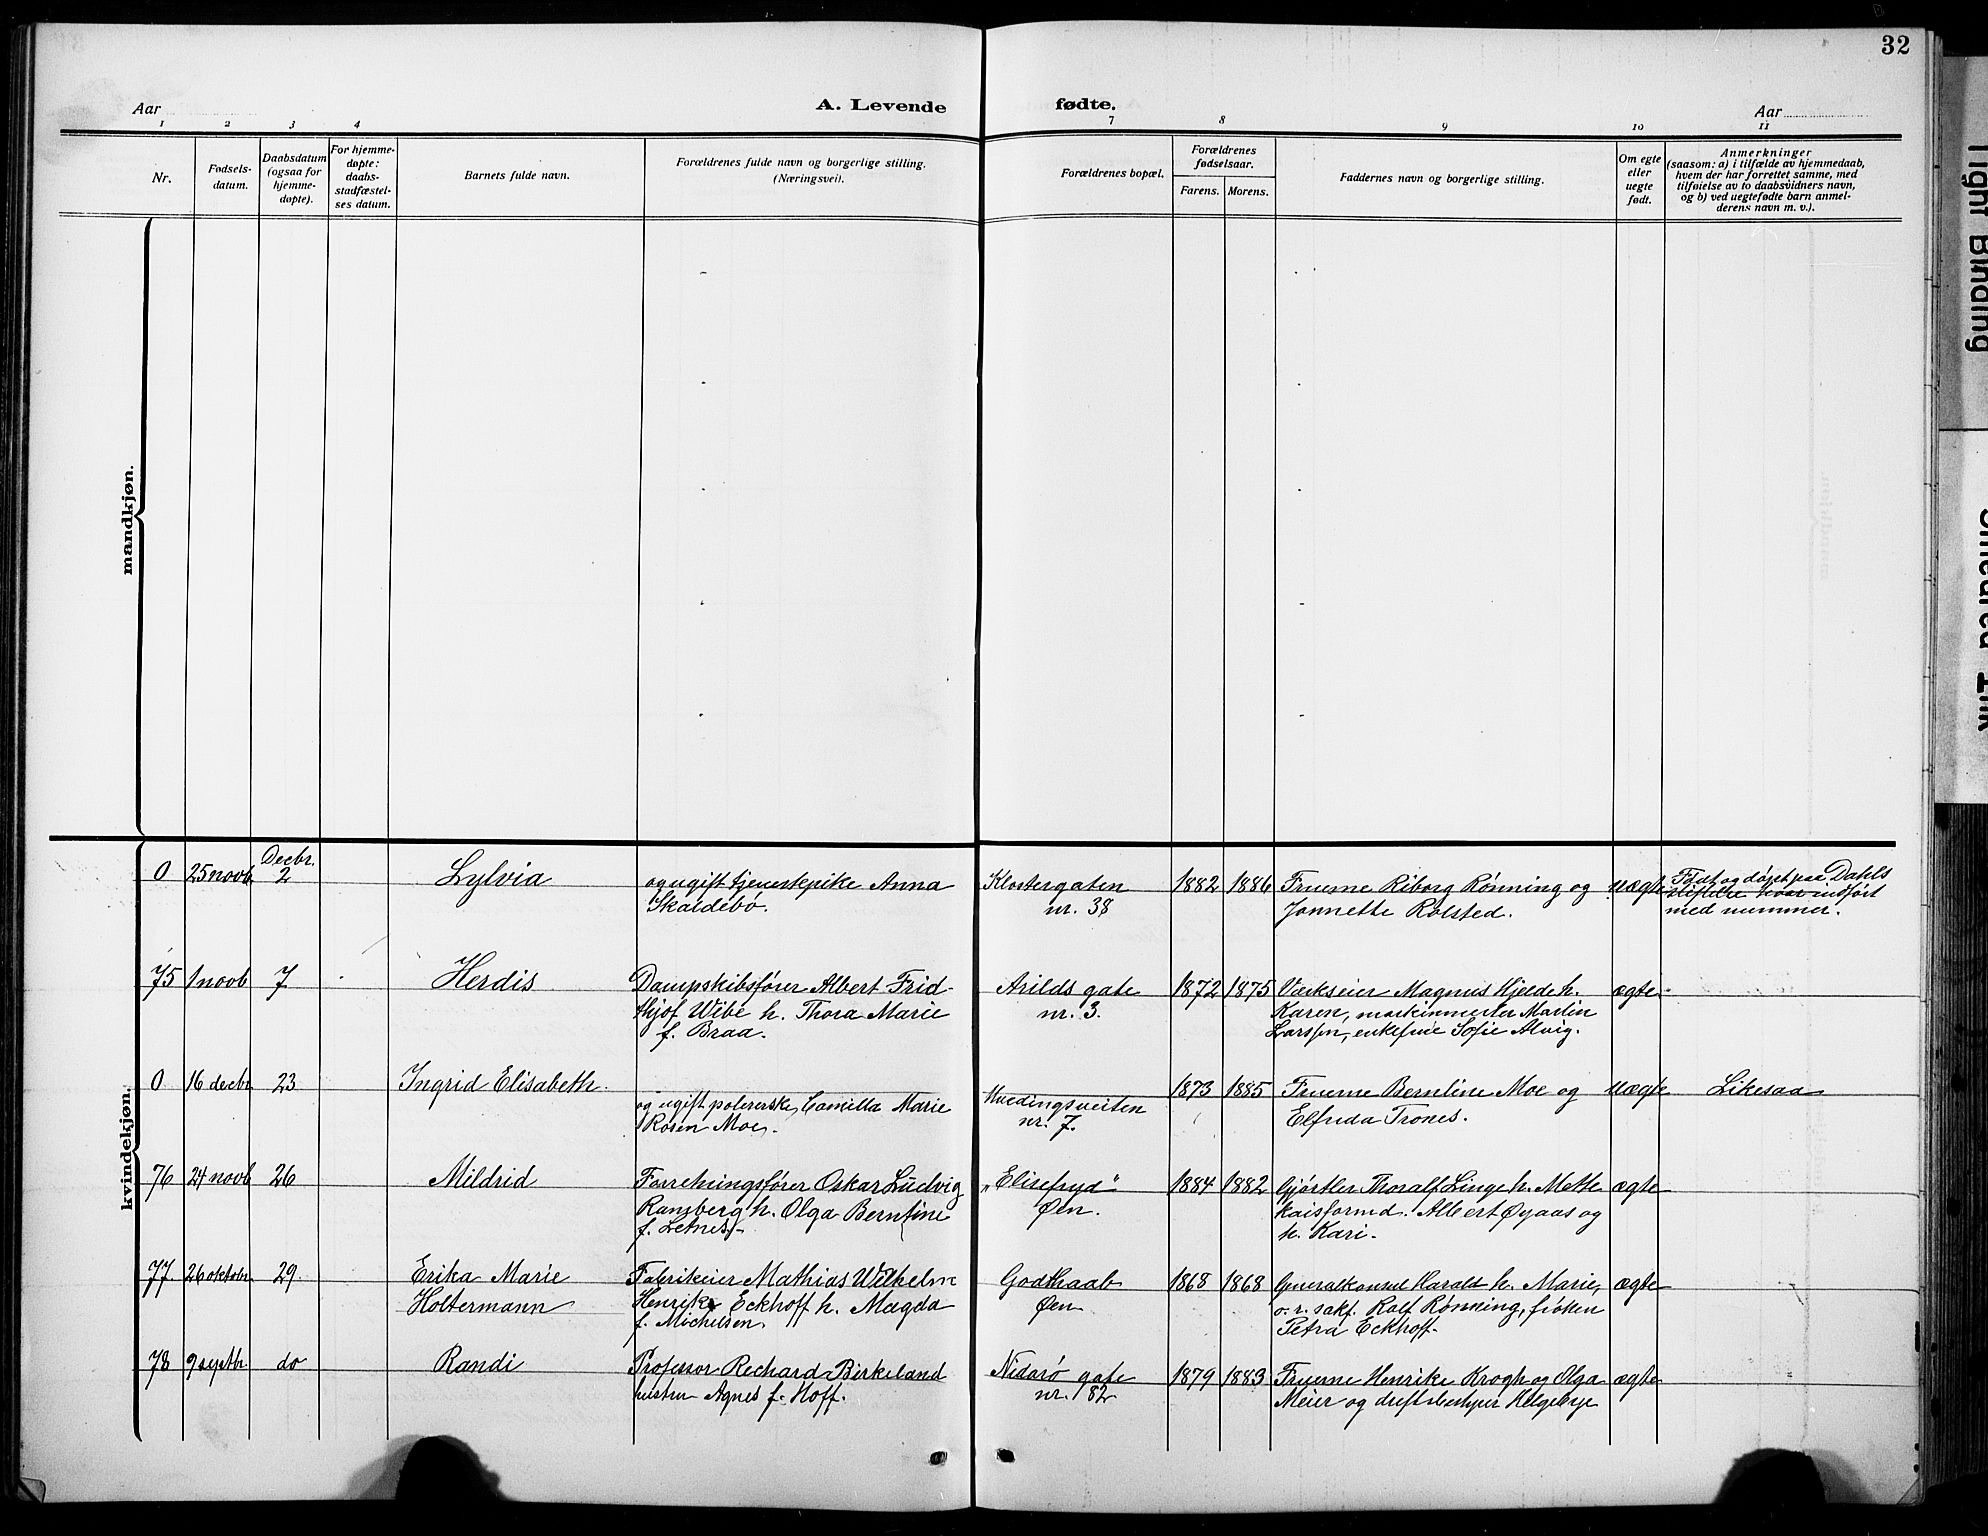 32
Aar
A. Levende fødte.
Aar
1 2 3 4 7 8 9 10 11
Nr.
Fødsels-
datum.
Daabsdatum
(ogsaa for
hjemme-
døpte).
For hjemme-
døpte:
daabs-
stadfæstel-
ses datum.
Barnets fulde navn.
Forældrenes fulde navn og borgerlige stilling.
(Næringsvei).
Forældrenes bopæl.
Forældrenes
fødselsaar.
Farens. Morens.
Faddernes navn og borgerlige stilling.
Om egte
eller
uegte
født.
Anmerkninger
(saasom: a) i tilfælde av hjemmedaab,
hvem der har forrettet samme, med
tilføielse av to daabsvidners navn,
og b) ved uegtefødte barn anmel-
derens navn m. v.).
mandkjøn.
kvindekjøn.
0 25 novb. Decbr. 2
Sylvia
og ugift tjenestepike Anna
Skaldebø.
Klostergaten
nr. 38
1882 1886
Fruerne Riborg Rønning og
Jonnette Rolsted.
uægte
Født og døpt paa Dahls
stiftelse hvor indført
med nummer.
75 1 novb 7
Herdis
Dampskibsfører Albert Frid-
thjof Wibe h. Thora Marie
f. Braa.
Arilds gate
nr. 3.
1872 1875
Værkseier Magnus Hjelde h.
Karen, maskinmester Martin
Larssen, enkefrue Sofie Alvig.
ægte
0 16 decbr 23
Ingrid Elisabeth.
og ugift polererske Camilla Marie
Rosen Moe.
Hvedingsveiten
nr. 7.
1873 1885
Fruerne Berntine Moe og
Elfrida Trones.
uægte
Likesaa
76 24 novb 26
Mildrid
Forretningsfører Oskar Ludvig
Ransberg h. Olga Berntine
f. Letnes.
"Elisefryd"
Øen.
1884 1882
Gjørtler Thoralf Linge h. Mette
kaisformd. Albert Øyaas og
h. Kari.
ægte
77. 26 oktobr. 29.
Erika Marie
Holtermann
Fabrikeier Mathias Wilhelm
Henrik Eckhoff h. Magda
f. Michelsen.
Godthaab
Øen
1868 1868
Generalkonsul Harald h. Marie,
o. r. sakf. Rolf Rønning, frøken
Petra Eckhoff.
ægte
78 9 septbr. do
Randi
Professor Rechard Birkeland
hustru Agnes f. Hoff.
Nidarø gate
nr. 182
1879 1883
Fruerne Henrike Krogh og Olga
Meier og driftsbestyrer Helgebye
ægte
Tight Binding